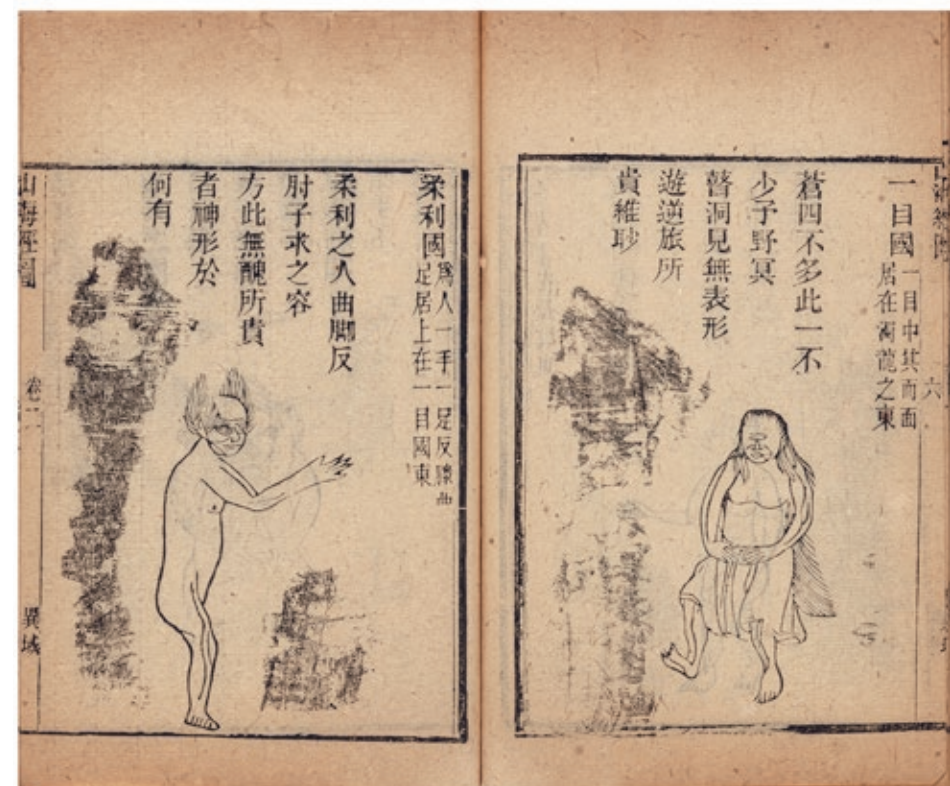 六
一目國
一目中其而面
居在龍之東
蒼四不多此一不
少子野冥
瞽洞見無表形
遊逆旅所
貴維眇
柔利國
爲人一手一足反膝曲
足居上在一目國東
柔利之人曲腳反
肘子求之容
方此無醜所貴
者神形於
何有
山海經圖
異域